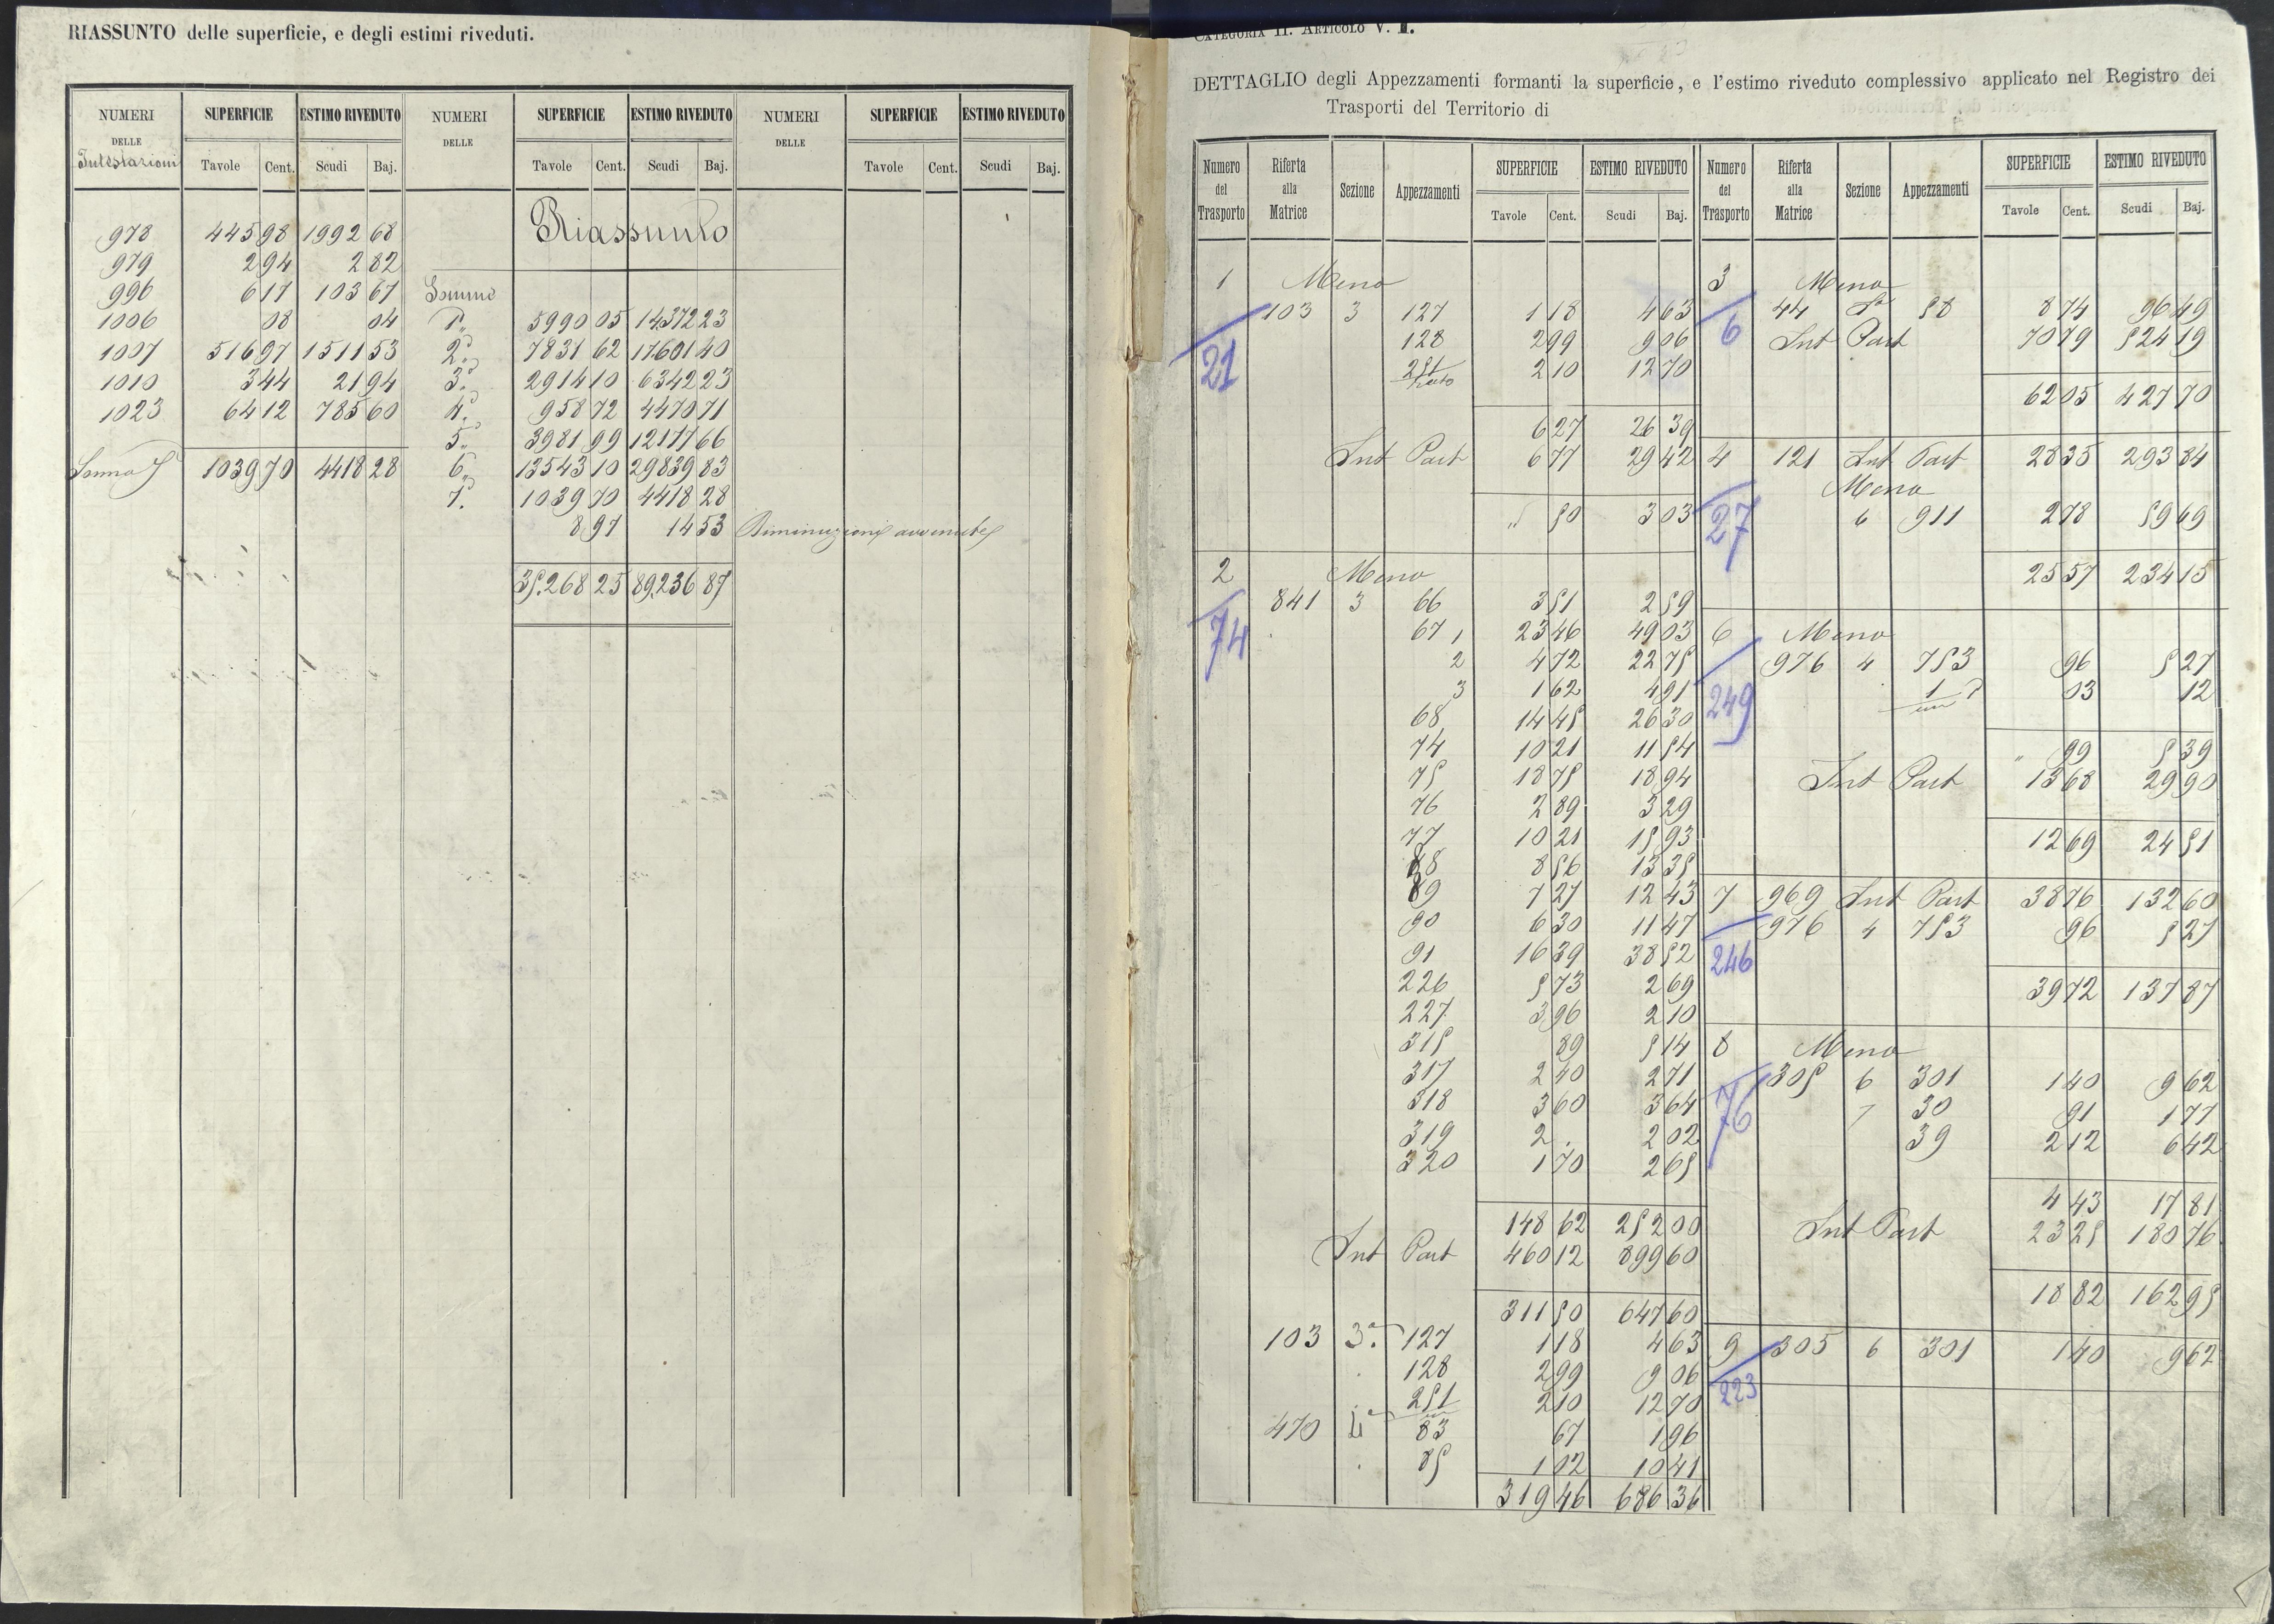 RIASSUNTO delle superficie, e degli estimi riveduti.
NUMERI DELLE Intestazioni SUPERFICIE Tavole Cent. ESTIMO RIVEDUTO Scudi Baj. NUMERI DELLE SUPERFICIE Tavole Cent. ESTIMO RIVEDUTO Scudi Baj. NUMERI DELLE SUPERFICIE Tavole Cent. ESTIMO RIVEDUTO Scudi Baj.
978 445 98 1992 68
979 2 94 2 82
996 6 17 103 67
1006 08 04
1007 516 97 1511 53
1010 3 44 21 94
1023 64 12 785 60
Somma 1039 70 4418 28
Riassunto
Somme
1ª 5990 05 14372 23
2ª 7831 62 17601 40
3ª 2914 10 6342 23
4ª 958 72 4470 71
5ª 3981 99 12177 66
6ª 13543 10 29839 83
7ª 1039 70 4418 28
8 97 14 53 Diminuzioni avvenute
35.268 25 89.236 87
CATEGORIA II. ARTICOLO V. I.
DETTAGLIO degli Appezzamenti formanti la superficie, e l'estimo riveduto complessivo applicato nel Registro dei
Trasporti del Territorio di
Numero del Trasporto Riferta alla Matrice Sezione Appezzamenti SUPERFICIE Tavole Cent. ESTIMO RIVEDUTO Scudi Baj. Numero del Trasporto Riferta alla Matrice Sezione Appezzamenti SUPERFICIE Tavole Cent. ESTIMO RIVEDUTO Scudi Baj.
1 Meno
103 3 127 1 18 4 63
21
128 2 99 9 06
251 2 10 12 70
6 27 26 39
Int Part 6 77 29 42
" 50 3 03
2 Meno
841 3 66 3 51 2 59
74
67 1 23 46 49 03
2 4 72 22 75
3 1 62 4 91
68 14 45 26 30
74 10 21 11 54
75 18 75 18 94
76 2 89 3 29
77 10 21 15 93
88 8 56 13 35
89 7 27 12 43
90 6 30 11 47
91 16 39 38 52
226 5 73 2 69
227 3 96 2 10
315 89 5 14
317 2 40 2 71
318 3 60 3 64
319 2 . 2 02
320 1 70 2 65
148 62 252 00
Int Part 460 12 899 60
311 50 647 60
103 3ª 127 1 18 4 63
128 2 99 9 06
251 2 10 12 70
470 4ª 83 67 1 96
85 1 02 10 41
319 46 686 36
3 Meno
44 58 8 74 96 49
6
Int Part 70 79 524 19
62 05 427 70
4 121 Int Part 28 35 293 84
Meno
27
6 911 2 78 59 69
25 57 234 15
6 Meno
976 4 753 96 5 27
249
1 03 12
" 99 5 39
Int Part 13 68 29 90
12 69 24 51
7 969 Int Part 38 76 132 60
976 4 753 96 5 27
246
39 72 137 87
8 Meno
305 6 301 1 40 9 62
76
7 30 91 1 77
39 2 12 6 42
4 43 17 81
Int Part 23 25 180 76
18 82 162 95
9 305 6 301 1 40 9 62
223